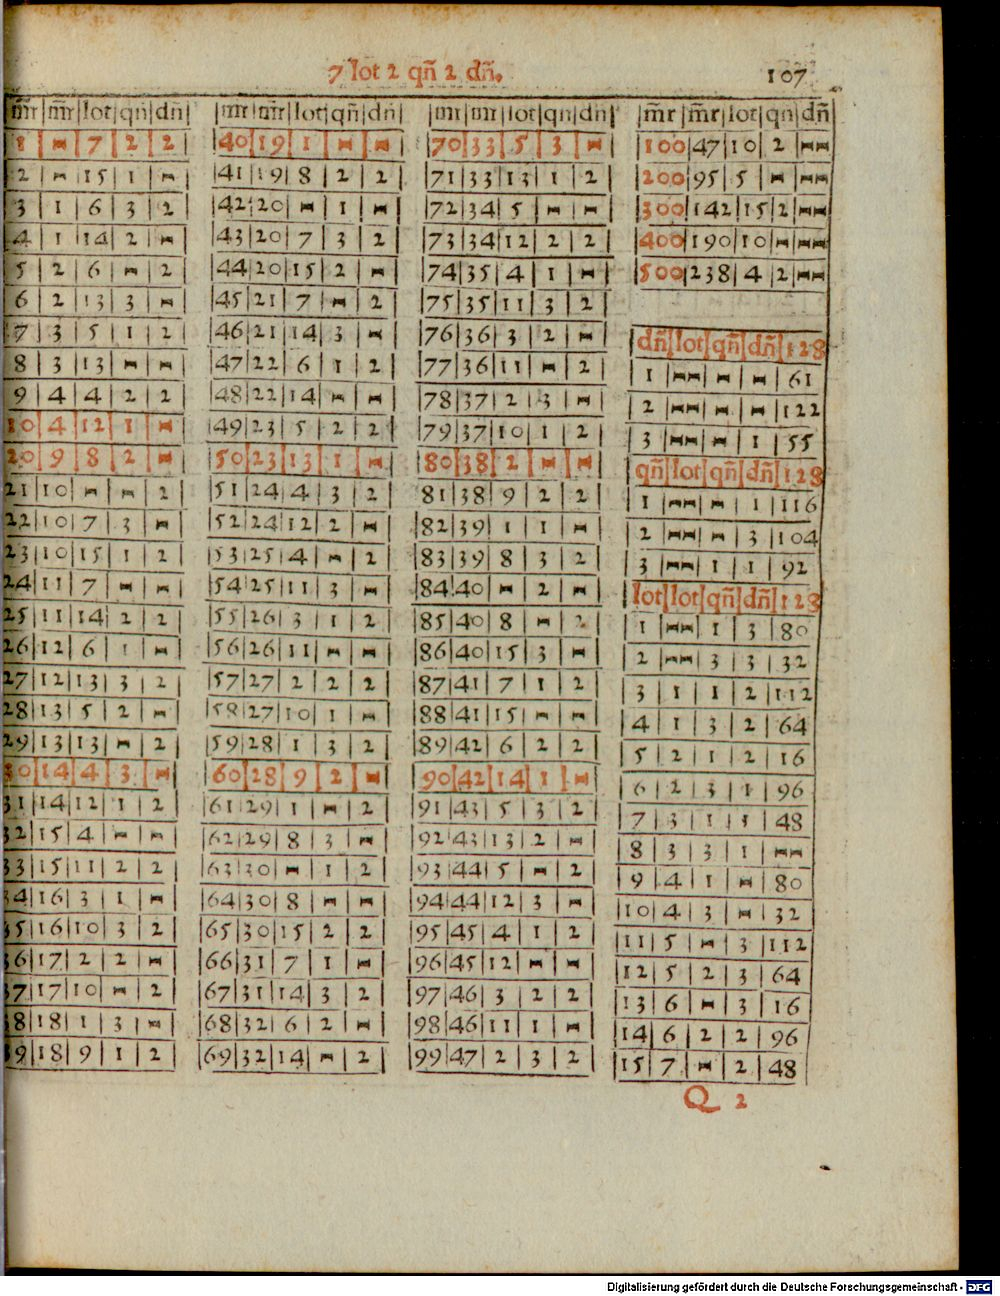 7 lot 2 qñ 2 dñ.
107
m̄r|m̄r|lot|qñ|dñ
1|-|7|2|2
2|-|15|1|-
3|1|6|3|2
4|1|14|2|-
5|2|6|-|2
6|2|13|3|-
7|3|5|1|2
8|3|13|-|-
9|4|4|2|2
10|4|12|1|-
20|9|8|2|-
21|10|-|-|2
22|10|7|3|-
23|10|15|1|2
24|11|7|-|-
25|11|14|2|2
26|12|6|1|-
27|12|13|3|2
28|13|5|2|-
29|13|13|-|2
30|14|4|3|-
31|14|12|1|2
32|15|4|-|-
33|15|11|2|2
34|16|3|1|-
35|16|10|3|2
36|17|2|2|-
37|17|10|-|2
38|18|1|3|-
39|18|9|1|2
m̄r|m̄r|lot|qñ|dñ
40|19|1|-|-
41|19|8|2|2
42|20|-|1|-
43|20|7|3|2
44|20|15|2|-
45|21|7|-|2
46|21|14|3|-
47|22|6|1|2
48|22|14|-|-
49|23|5|2|2
50|23|13|1|-
51|24|4|3|2
52|24|12|2|-
53|25|4|-|2
54|25|11|3|-
55|26|3|1|2
56|26|11|-|-
57|27|2|2|2
58|27|10|1|-
59|28|1|3|2
60|28|9|2|-
61|29|1|-|2
62|29|8|3|-
63|30|-|1|2
64|30|8|-|-
65|30|15|2|2
66|31|7|1|-
67|31|14|3|2
68|32|6|2|-
69|32|14|-|2
m̄r|m̄r|lot|qñ|dñ
70|33|5|3|-
71|33|13|1|2
72|34|5|-|-
73|34|12|2|2
74|35|4|1|-
75|35|11|3|2
76|36|3|2|-
77|36|11|-|2
78|37|2|3|-
79|37|10|1|2
80|38|2|-|-
81|38|9|2|2
82|39|1|1|-
83|39|8|3|2
84|40|-|2|-
85|40|8|-|2
86|40|15|3|-
87|41|7|1|2
88|41|15|-|-
89|42|6|2|2
90|42|14|1|-
91|43|5|3|2
92|43|13|2|-
93|44|5|-|2
94|44|12|3|-
95|45|4|1|2
96|45|12|-|-
97|46|3|2|2
98|46|11|1|-
99|47|2|3|2
m̄r|m̄r|lot|qñ|dñ
100|47|10|2|--
200|95|5|-|--
300|142|15|2|--
400|190|10|-|--
500|238|4|2|--
dñ|lot|qñ|dñ|128
1|--|-|-|61
2|--|-|-|122
3|--|-|1|55
qñ|lot|qñ|dñ|128
1|--|-|1|116
2|--|-|3|104
3|--|1|1|92
lot|lot|qñ|dñ|128
1|--|1|3|80
2|--|3|3|32
3|1|1|2|112
4|1|3|2|64
5|2|1|2|16
6|2|3|1|96
7|3|1|1|48
8|3|3|1|--
9|4|1|-|80
10|4|3|-|32
11|5|-|3|112
12|5|2|3|64
13|6|-|3|16
14|6|2|2|96
15|7|-|2|48
Q 2
Digitalisierung gefördert durch die Deutsche Forschungsgemeinschaft - DFG